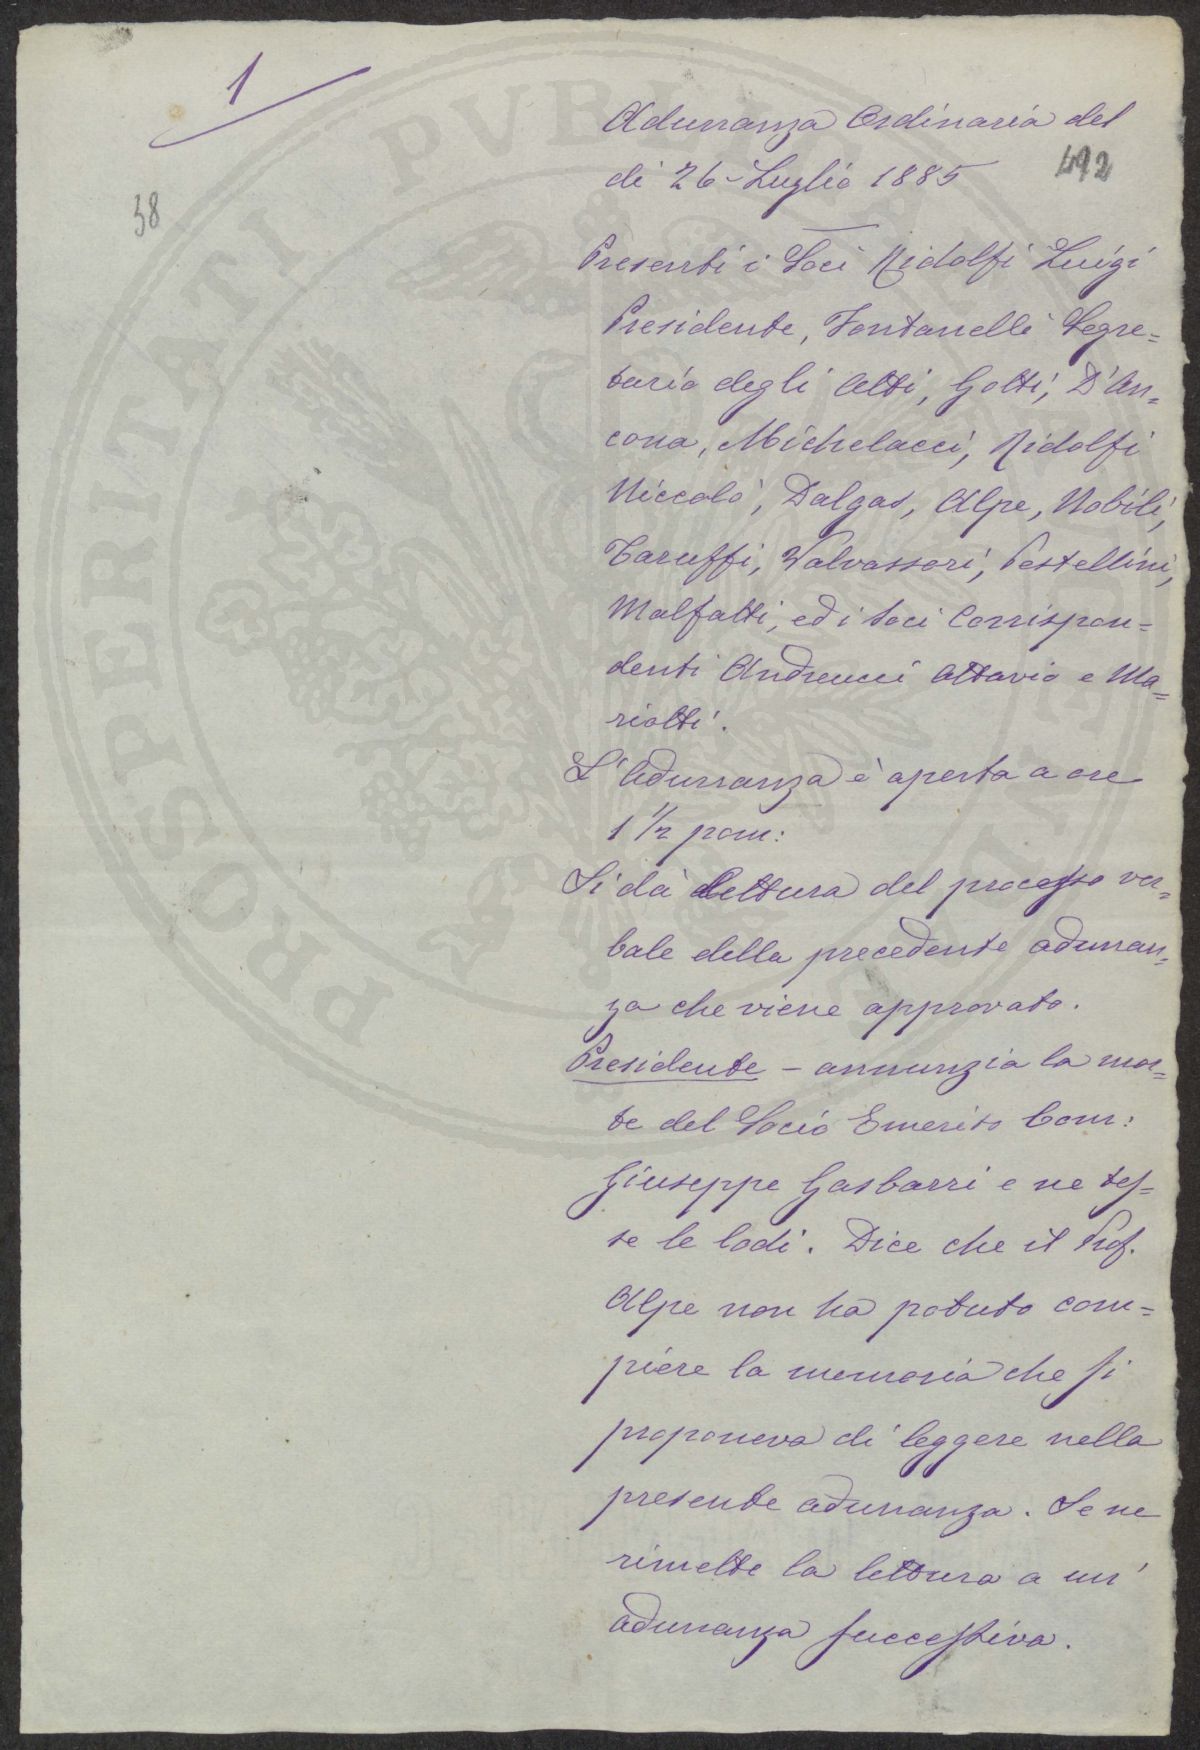 1
Adunanza Ordinaria del
dì 26 - Luglio 1885
492
38
Presenti i Soci Ridolfi Luigi
Presidente, Fontanelli Segre=
tario degli Atti, Gotti, D'An=
cona, Michelacci, Ridolfi
Niccolò, Dalgas, Alpe, Nobili,
Taruffi, Valvassori, Pestellini,
Malfatti, ed i Soci Corrispon=
denti Andreucci Ottavio e Ma=
riotti.
L'Adunanza è aperta a ore
1 1/2 pom:
Si dà lettura del processo ver=
bale della precedente adunan=
za che viene approvato.
Presidente - annunzia la mor=
te del Socio Emerito Com:
Giuseppe Gasbarri e ne tes=
se le lodi. Dice che il Prof.
Alpe non ha potuto com=
piere la memoria che si
proponeva di leggere nella
presente adunanza. Se ne
rimette la lettura a un'
adunanza successiva.
PROSPERITATI PVBLICAE